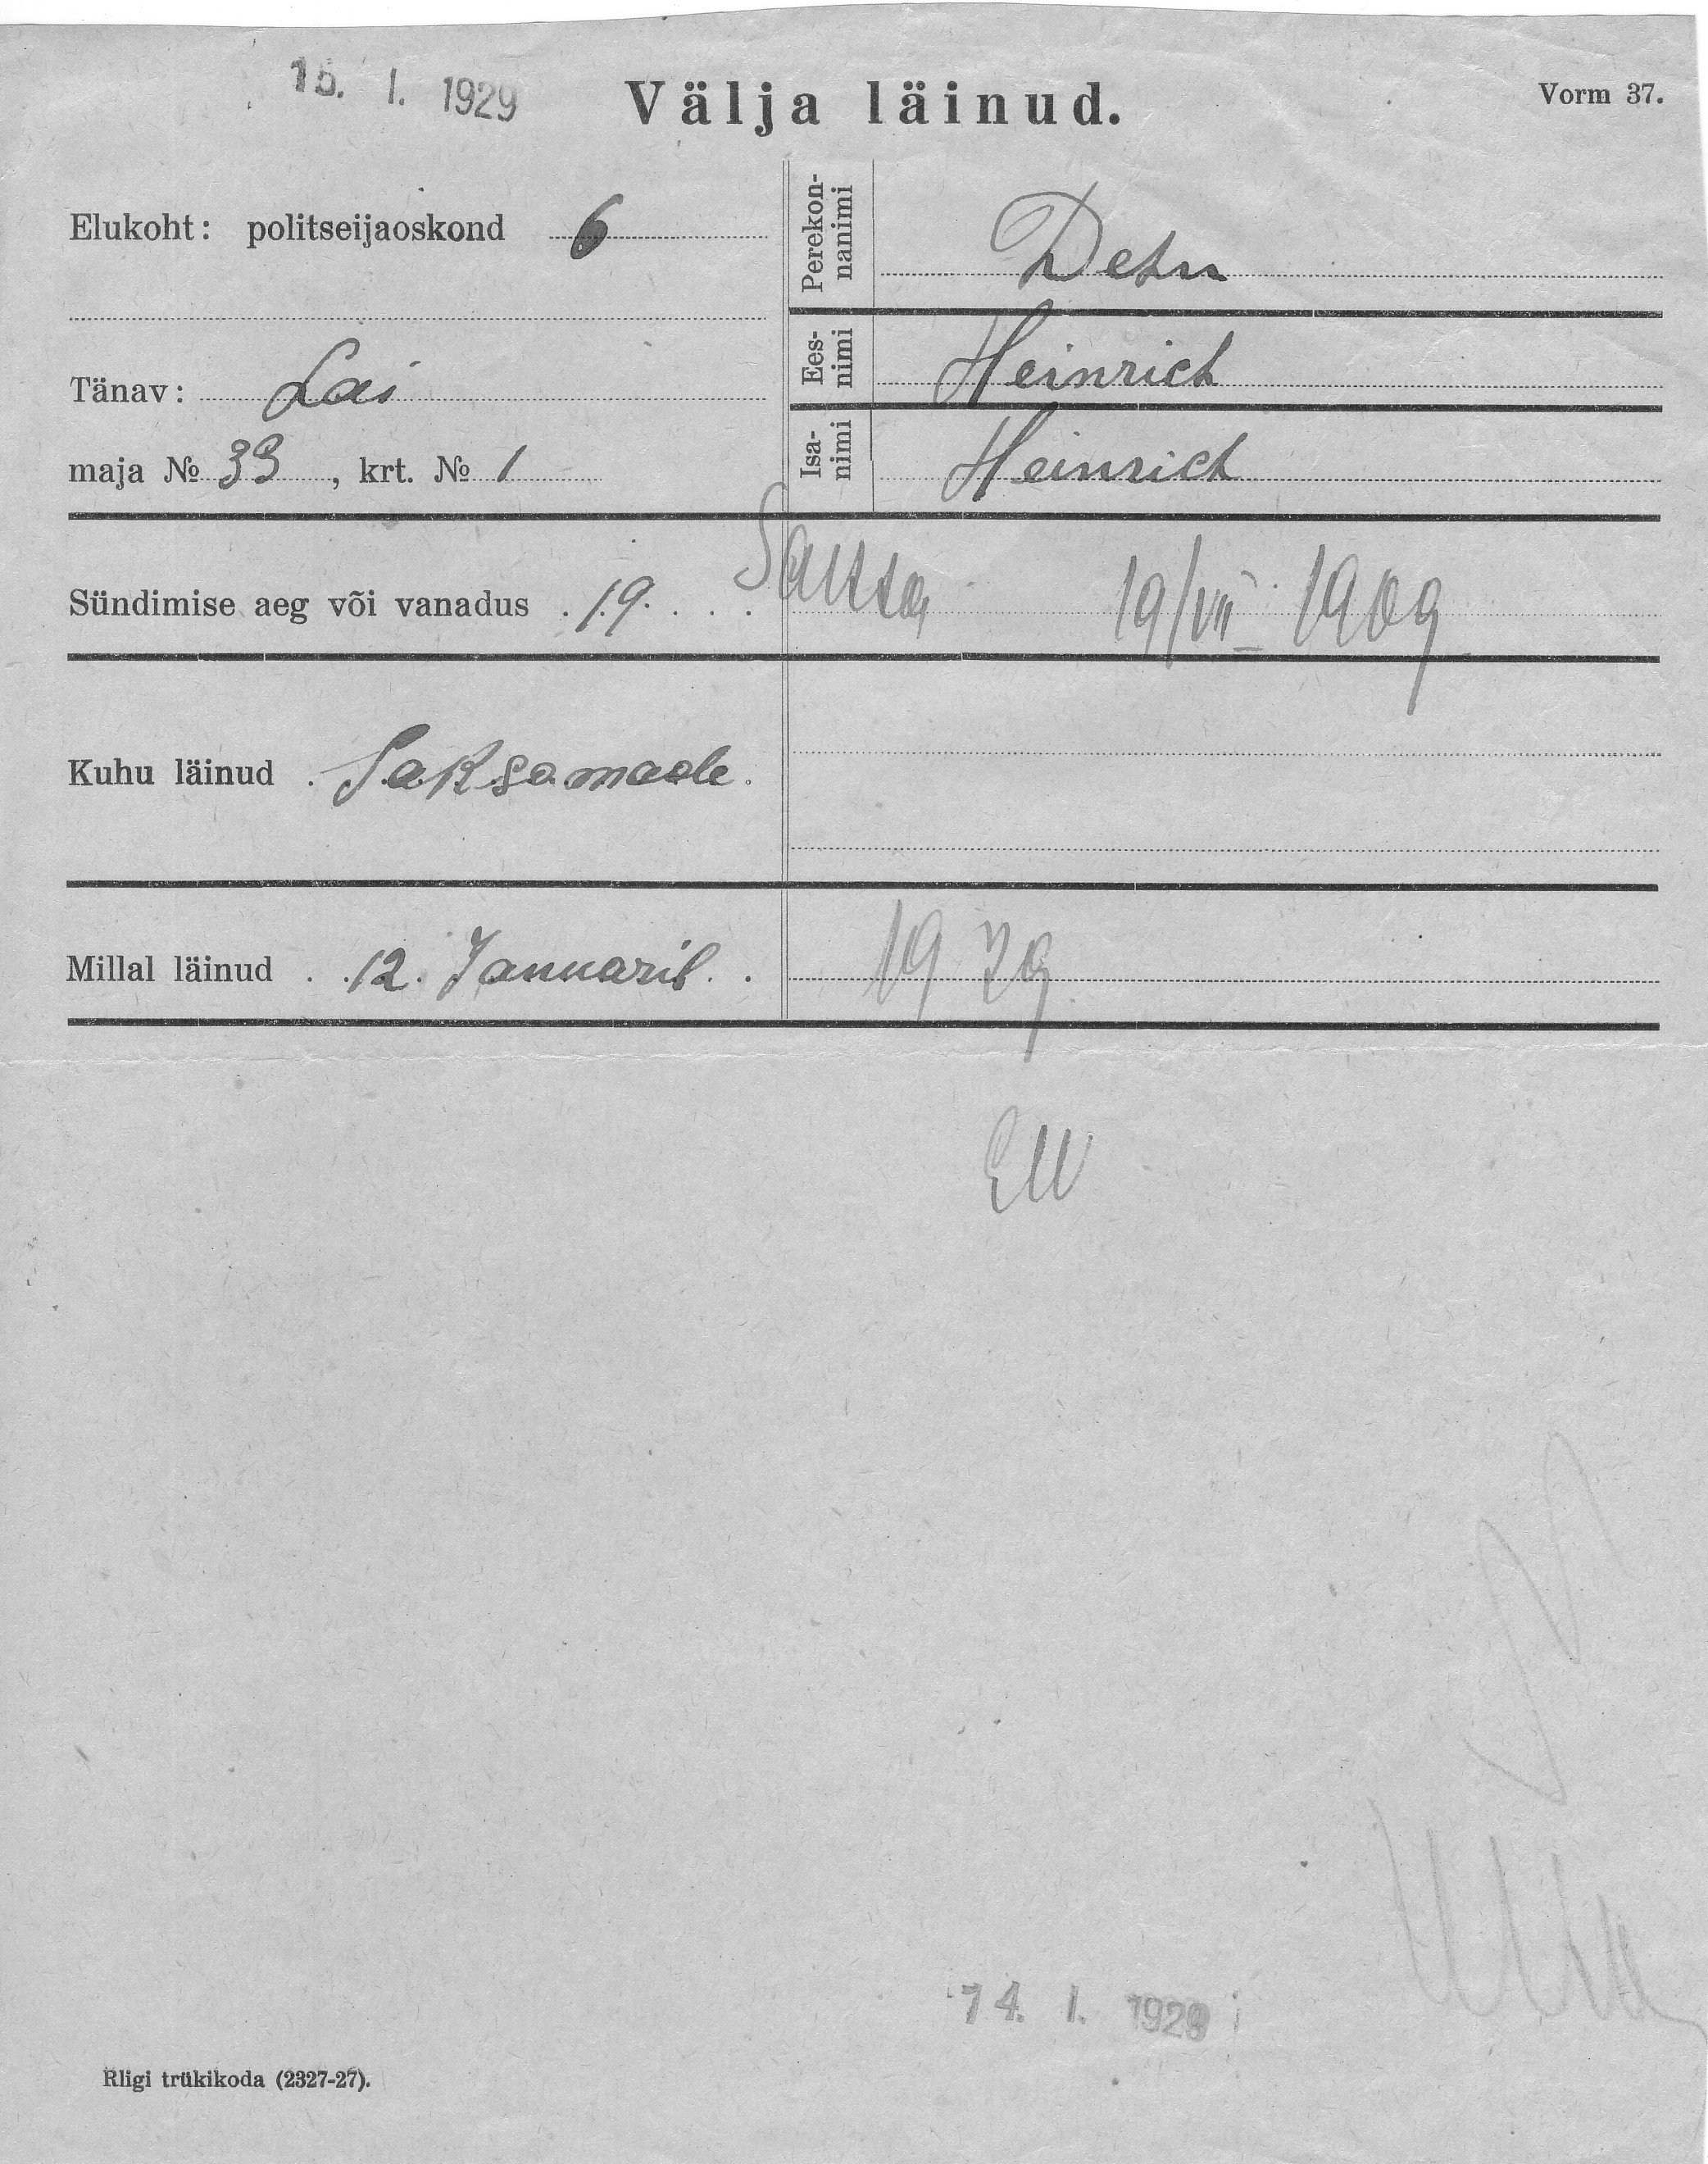 15. I. 1929
Välja läinud.
Vorm 37.
Elukoht: politseijaoskond 6
Tänav: Lai
maja № 33, krt. № 1
Perekon-
nanimi
Dehn
Ees-
nimi
Heinrich
Isa-
nimi
Heinrich
Sündimise aeg või vanadus . 19. . . . 19/VII 1909
Kuhu läinud . Saksamaale.
Millal läinud . . 12. Januaril. . 1929
14. I. 1929
Riigi trükikoda (2327-27).